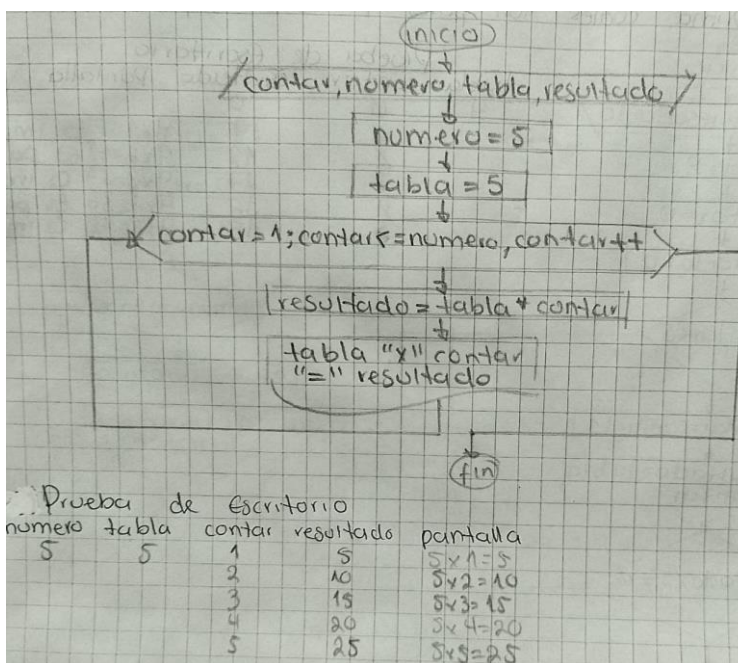 inicio
contar, numero, tabla, resultado
numero = 5
tabla = 5
contar = 1; contar <= numero, contar++
resultado = tabla * contar
tabla "x" contar
"=" resultado
fin
Prueba de Escritorio
numero tabla contar resultado pantalla
5 5 1 5 5x1=5
2 10 5x2=10
3 15 5x3=15
4 20 5x4=20
5 25 5x5=25